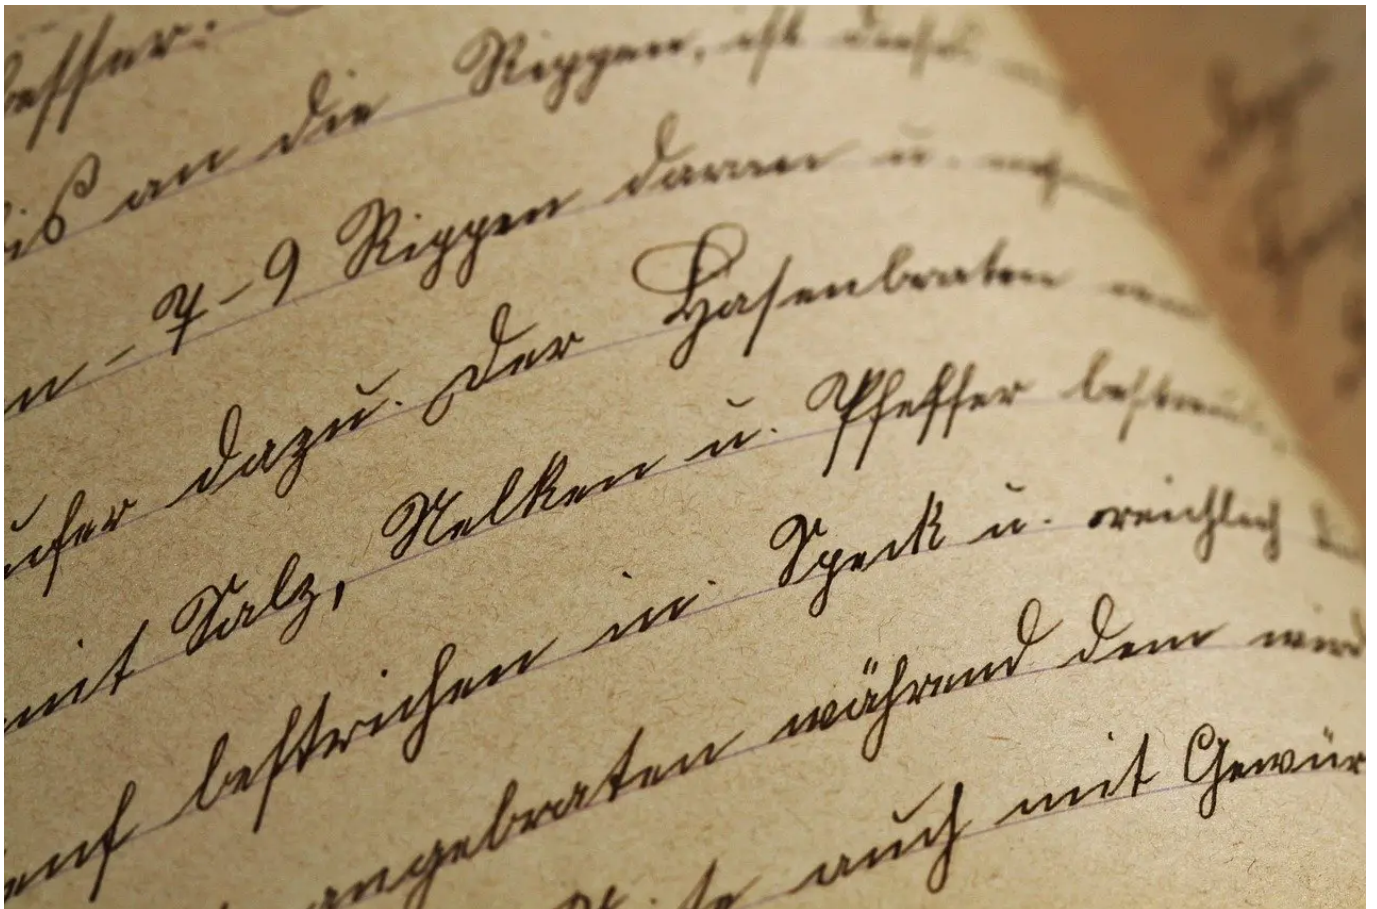 besser.
bis an die Rippen, ist dieses
n - 7-9 Rippen daran u.
dazu. Der Hasenbraten
mit Salz, Nelken u. Pfeffer bestreut
bestrichen in Speck u. reichlich
angebraten während dem wird
auch mit Gewür